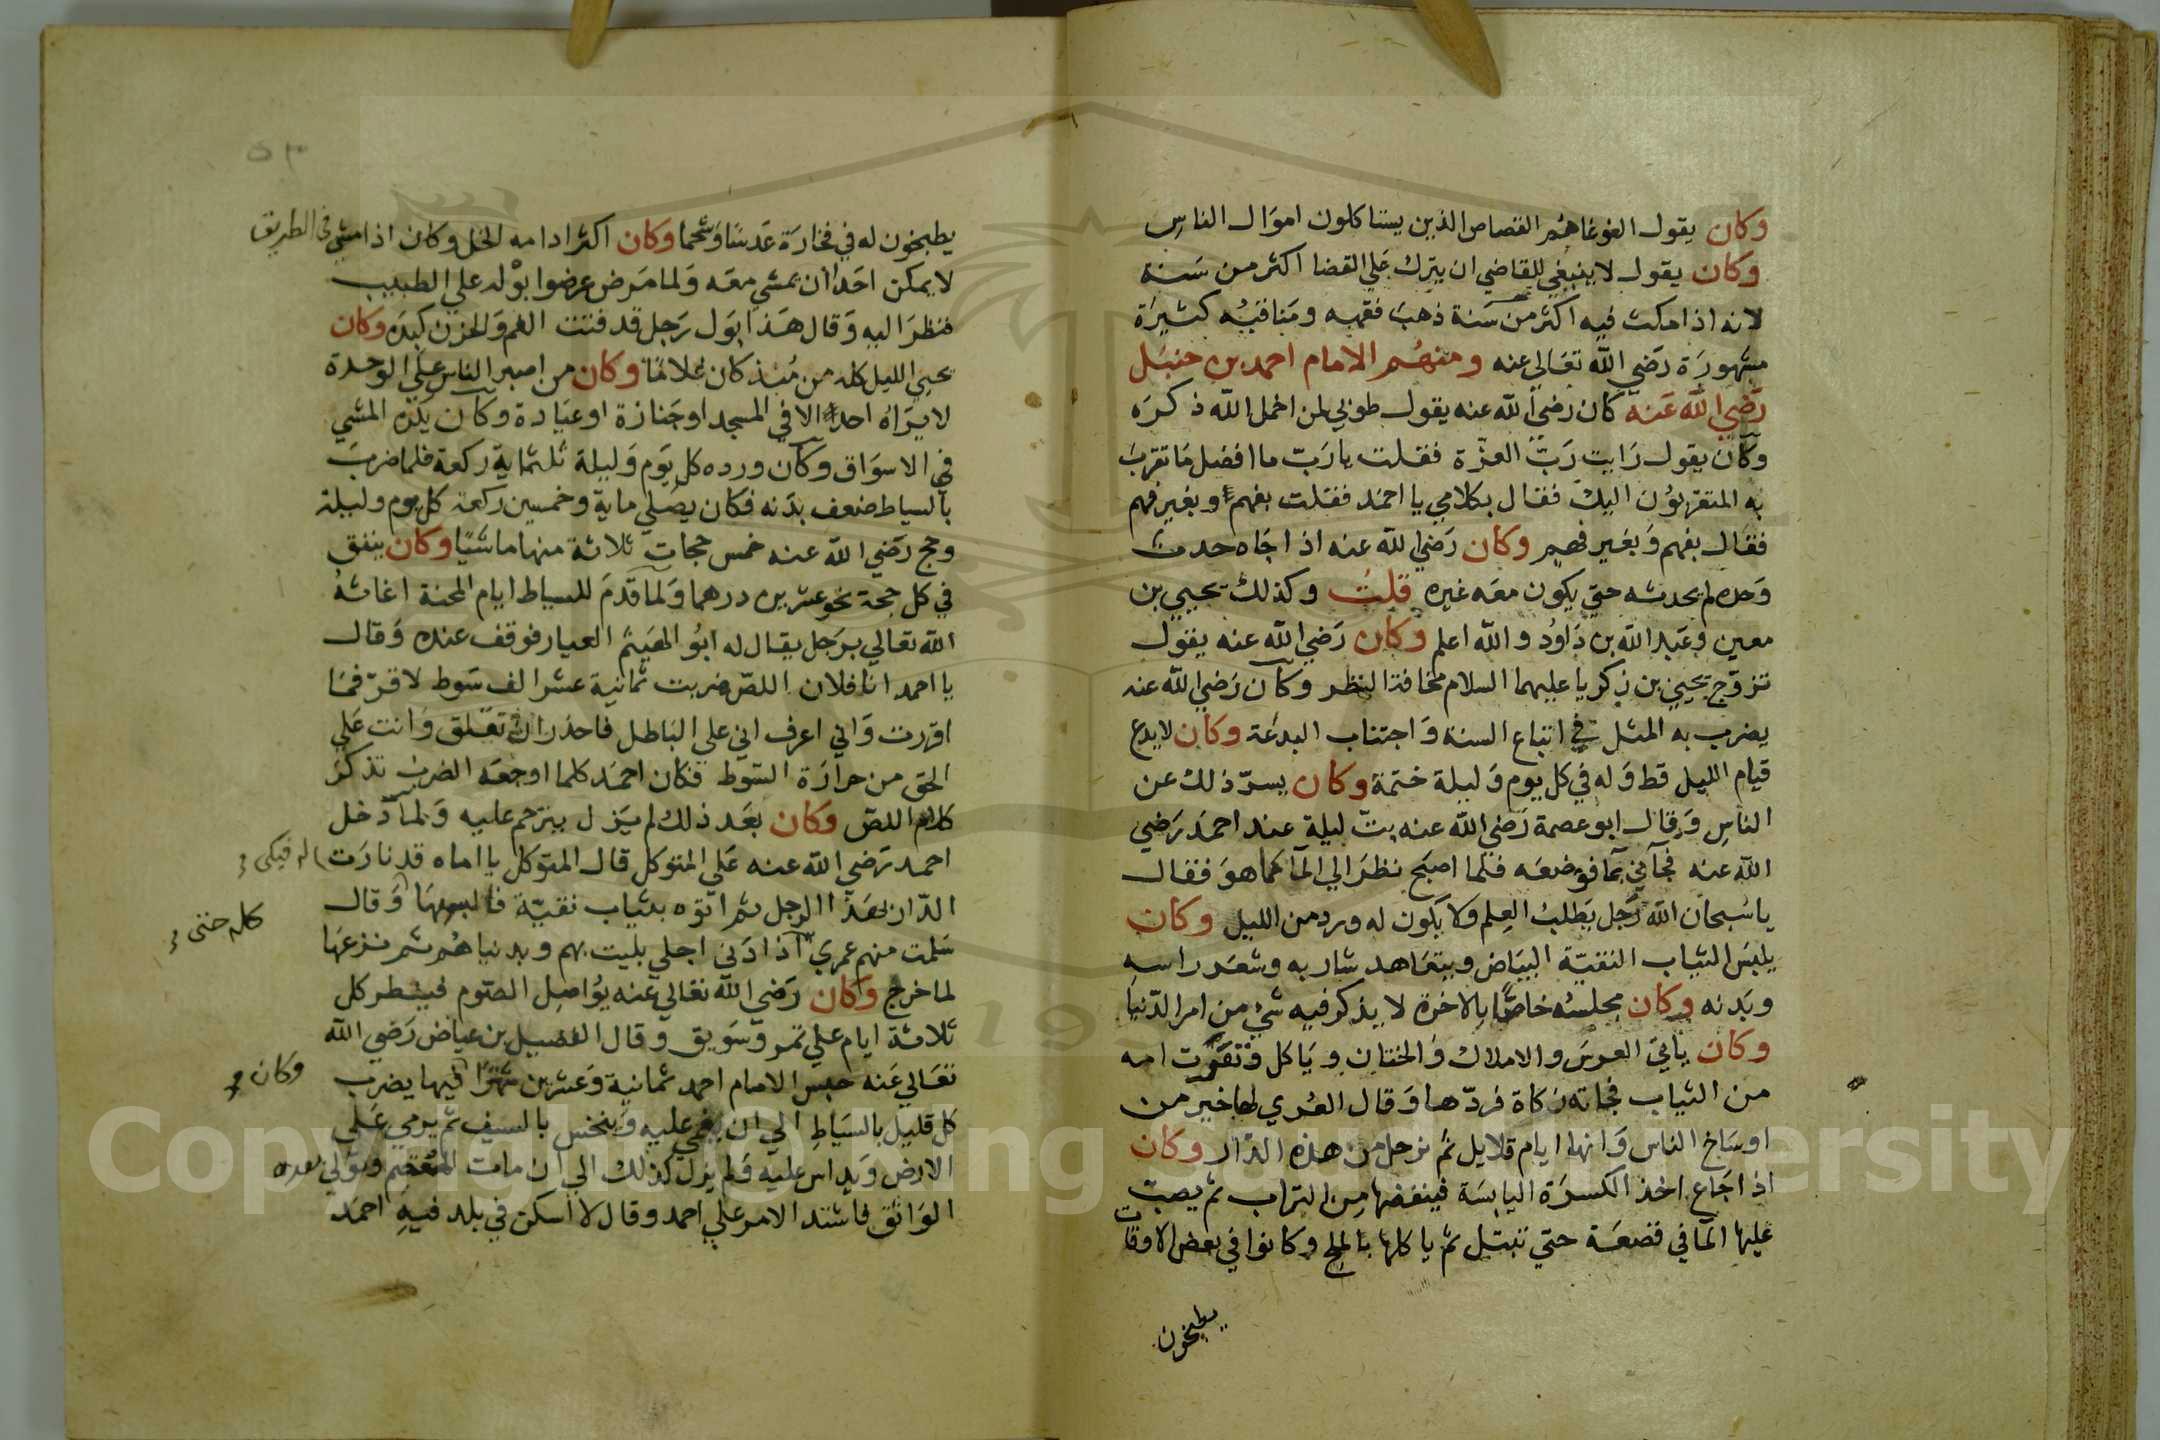 وكان يقول الغوغا هم القصاص الذين يستاكلون اموال الناس
وكان يقول لا ينبغي للقاضي ان يترك علي القضا اكثر من سنة
لانه اذا مكث فيه اكثر من سنة ذهب فقهه ومناقبه كثيرة
مشهورة رضي الله تعالي عنه ومنهم الامام احمد بن حنبل
رضي الله عنه كان رضي الله عنه يقول طوبي لمن اخمل الله ذكره
وكان يقول رايت رب العزة فقلت يا رب ما افضل ما تقرب
به المتقربون اليك فقال بكلامي يا احمد فقلت بفهم او بغير فهم
فقال بفهم وبغير فهم وكان رضي الله عنه اذا جاه حدث
وحده لم يحدثه حتي يكون معه غيره قلت وكذلك يحيي بن
معين وعبد الله بن داود والله اعلم وكان رضي الله عنه يقول
تزوج يحيي بن زكريا عليهما السلام مخافة النظر وكان رضي الله عنه
يضرب به المثل في اتباع السنة واجتناب البدعة وكان لا يدع
قيام الليل قط وله في كل يوم وليلة ختمة وكان يسر ذلك عن
الناس وقال ابو عصمة رضي الله عنه بت ليلة عند احمد رضي
الله عنه فجآني بما فوضعه فلما اصبح نظر الي المآ كما هو فقال
يا سبحان الله رجل يطلب العلم ولا يكون له ورد من الليل وكان
يلبس الثياب النقية البياض ويتعاهد شاربه وشعر راسه
وبدنه وكان مجلسه خاصا بالاخرة لا يذكر فيه شي من امر الدنيا
وكان ياتي العرس والاملاك والختان وياكل وتعرت امه
من الثياب فجاته زكاة فردها وقال العري لها خير من
اوساخ الناس وانها ايام قلايل ثم نرحل من هذه الدار وكان
اذا جاع اخذ الكسرة اليابسة فينفضها من التراب ثم يصب
عليها المآ في قصعة حتي تبتل ثم ياكلها بالملح وكانوا في بعض الاوقات
يطبخون
٥٣
يطبخون له في فخارة عدسا وشحما وكان اكثر ادامه الخل وكان اذا مشي في الطريق
لا يمكن احدا ان يمشي معه ولما مرض عرضوا بوله علي الطبيب
فنظر اليه وقال هذا بول رجل قد فتت الغم والحزن كبده وكان
يحيي الليل كله من منذ كان غلاما وكان من اصبر الناس علي الوحدة
لا يراه احد الا في المسجد او جنازة او عيادة وكان يكره المشي
في الاسواق وكان ورده كل يوم وليلة ثلثماية ركعة فلما ضرب
بالسياط ضعف بدنه فكان يصلي ماية وخمسين ركعة كل يوم وليلة
وحج رضي الله عنه خمس حجات ثلاثة منها ماشيا وكان ينفق
في كل حجة نحو عشرين درهما ولما قدم للسياط ايام المحنة اغاثه
الله تعالي برجل يقال له ابو الهيثم العيار فوقف عنده وقال
يا احمد انا فلان اللص ضربت ثمانية عشر الف سوط لاقر فما
اقررت واني اعرف اني علي الباطل فاحذر ان تقلق وانت علي
الحق من حرارة السوط فكان احمد كلما اوجعه الضرب تذكر
كلام اللص وكان بعد ذلك لم يزل يترحم عليه ولما دخل
احمد رضي الله عنه علي المتوكل قال المتوكل يا اماه قد نارت
الدار بهذا الرجل ثم اتوه بثياب نقية فالبسها وقال
سلمت منهم عمري اذا دني اجلي بليت بهم وبدنياهم ثم نزعها
لما خرج وكان رضي الله تعالي عنه يواصل الصوم فيفطر كل
ثلاثة ايام علي تمر وسويق وقال الفضيل بن عياض رضي الله
تعالي عنه حبس الامام احمد ثمانية وعشرين شهرا فيها يضرب
كل قليل بالسياط الي ان يغمي عليه وينخس بالسيف ثم يرمي علي
الارض ويداس عليه ولم يزل كذلك الي ان مات المعتصم وتولي بعده
الواثق فاشتد الامر علي احمد وقال لا اسكن في بلد فيه احمد
كله حتى
وكان
Copyright © King Saud University